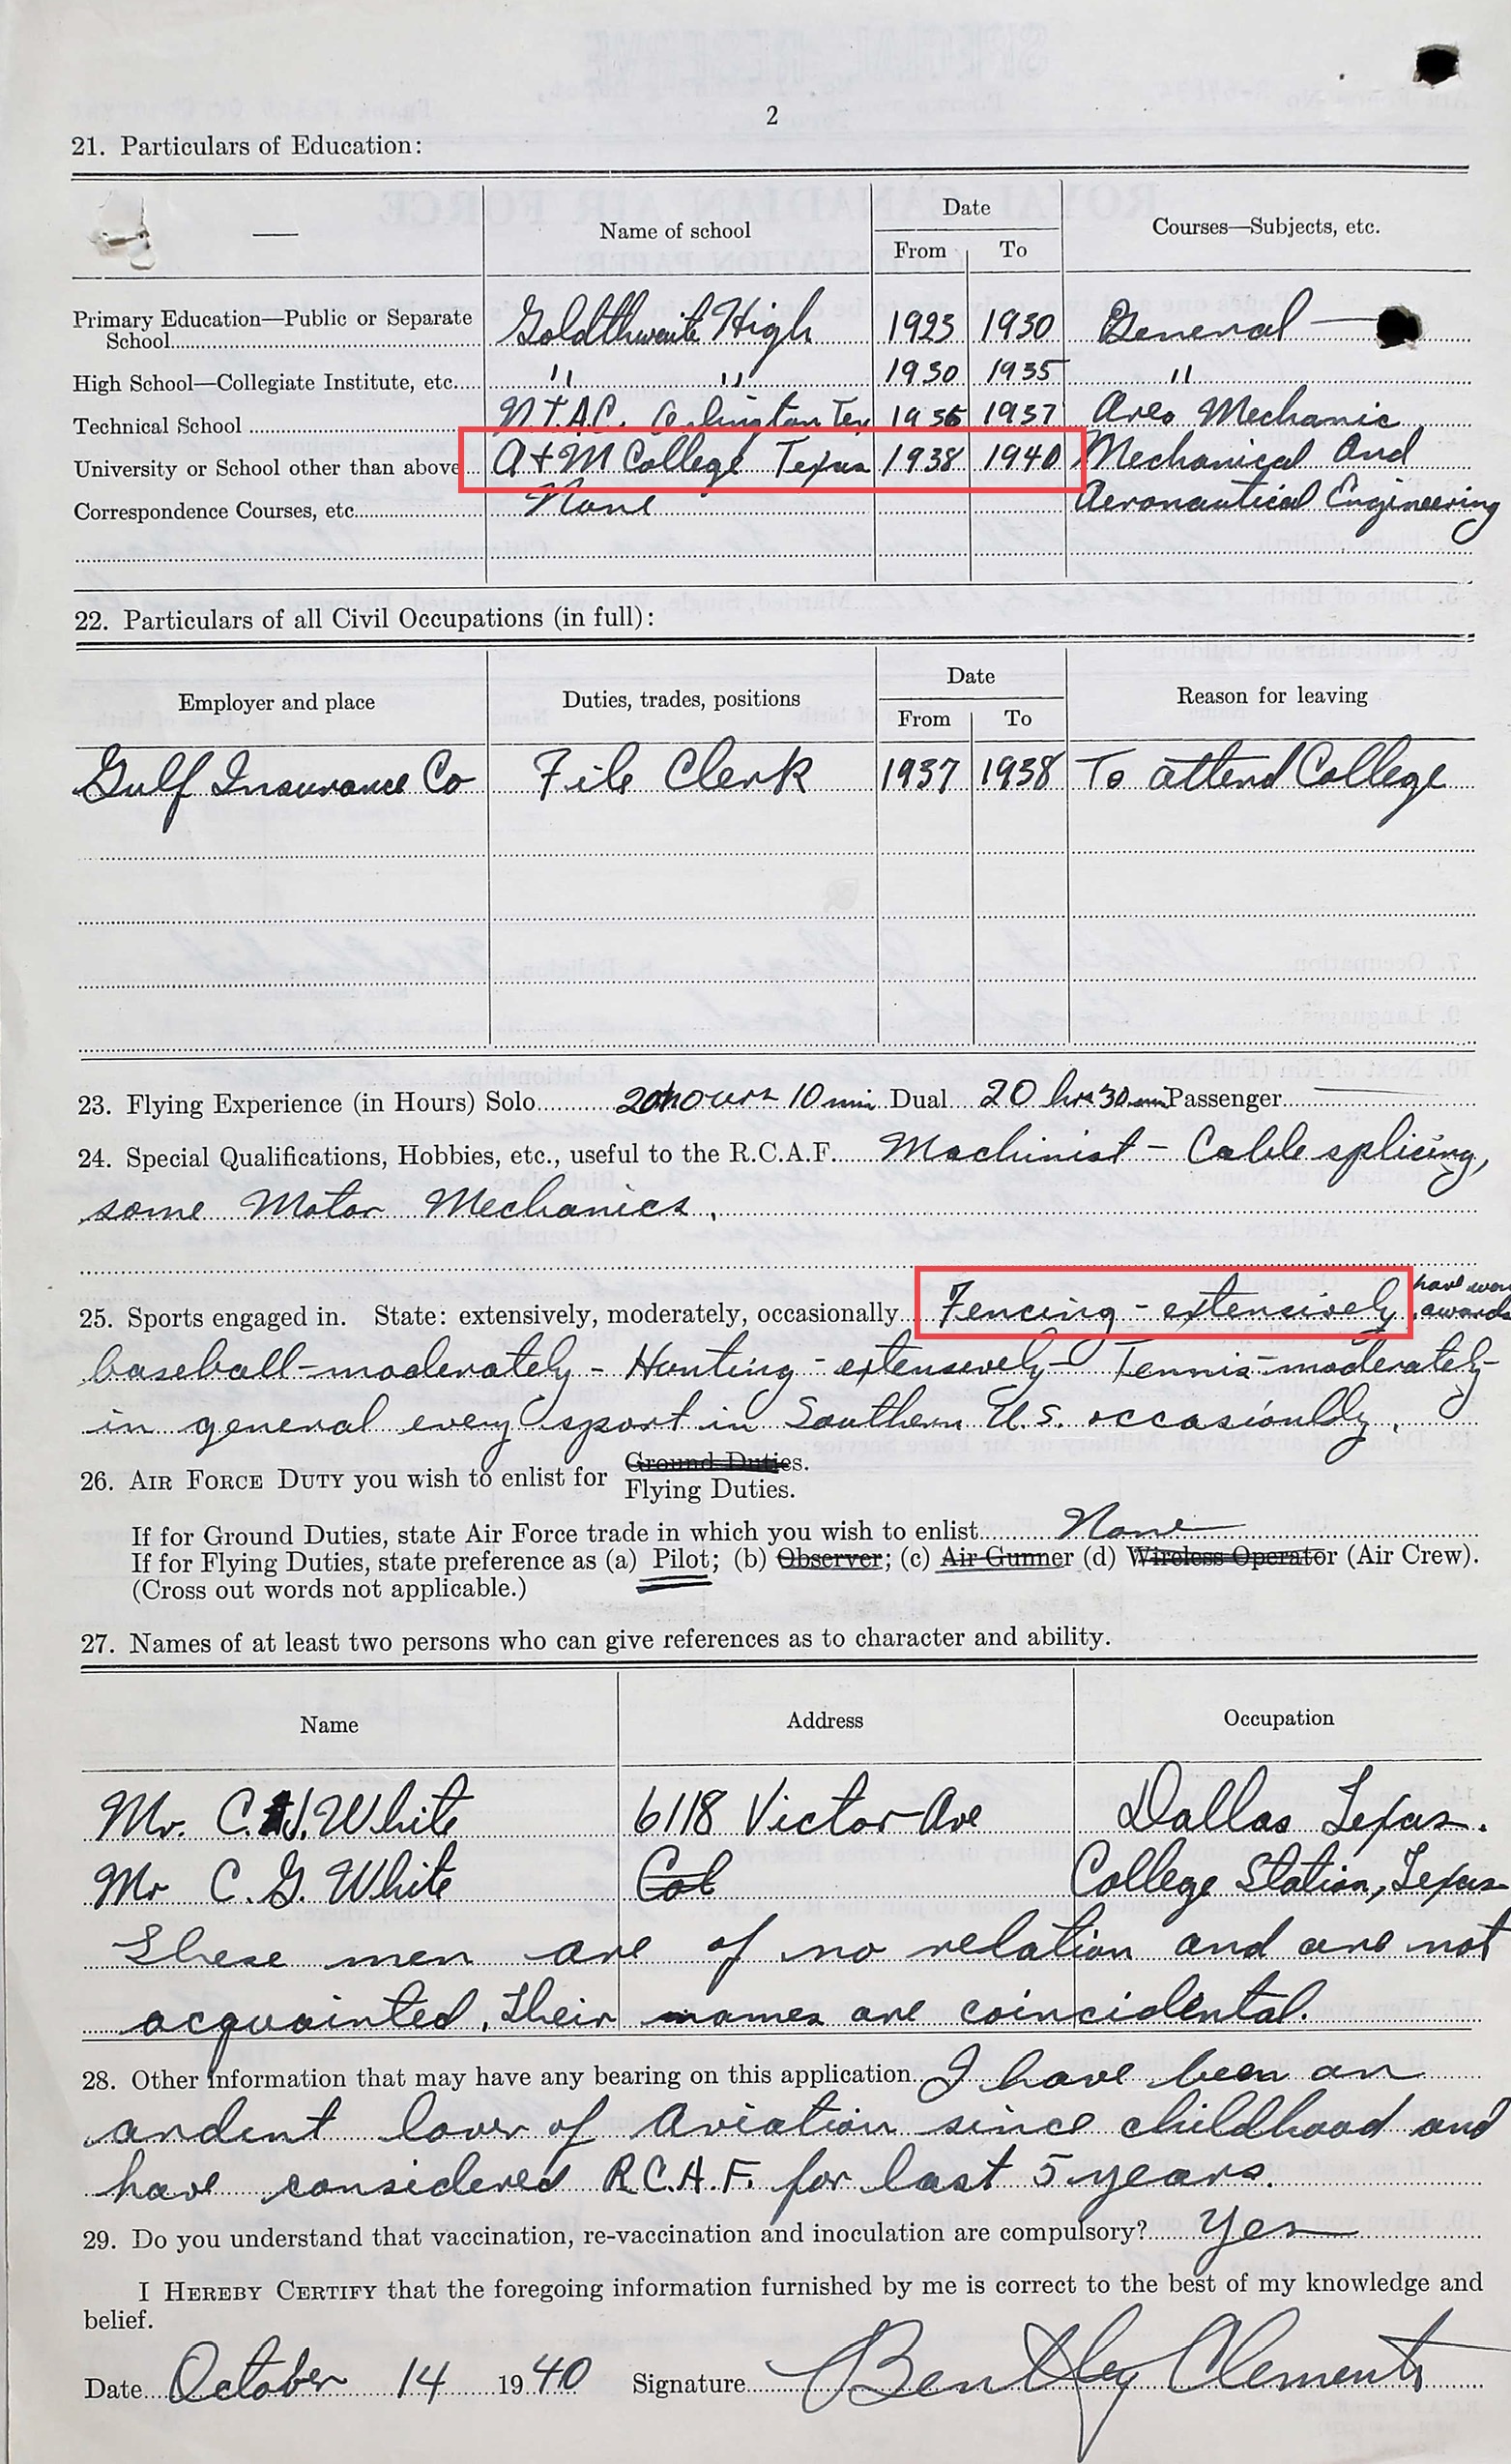 2
21. Particulars of Education:
— Name of school Date Courses—Subjects, etc.
From To
Primary Education—Public or Separate
School Goldthwaite High 1923 1930 General —
High School—Collegiate Institute, etc. " " 1930 1935 "
Technical School N.T.A.C. Arlington Tex 1936 1937 Areo Mechanic
University or School other than above A+M College Texas 1938 1940 Mechanical And
Correspondence Courses, etc. None Aeronautical Engineering
22. Particulars of all Civil Occupations (in full):
Employer and place Duties, trades, positions Date Reason for leaving
From To
Gulf Insurance Co File Clerk 1937 1938 To attend College
23. Flying Experience (in Hours) Solo 20 hours 10 min Dual 20 hrs 30 min Passenger —
24. Special Qualifications, Hobbies, etc., useful to the R.C.A.F. Machinist – Cable splicing,
some Motor Mechanics.
25. Sports engaged in. State: extensively, moderately, occasionally Fencing - extensively have won awards
baseball-moderately - Hunting - extensively - Tennis-moderately-
in general every sport in Southern U.S. occasionlly.
26. AIR FORCE DUTY you wish to enlist for Ground Duties.
Flying Duties.
If for Ground Duties, state Air Force trade in which you wish to enlist None
If for Flying Duties, state preference as (a) Pilot; (b) Observer; (c) Air Gunner (d) Wireless Operator (Air Crew).
(Cross out words not applicable.)
27. Names of at least two persons who can give references as to character and ability.
Name Address Occupation
Mr. C. J. White 6118 Victor Ave Dallas Texas.
Mr C. G. White Col College Station, Texas
These men are of no relation and are not
acquainted. Their names are coincidental.
28. Other information that may have any bearing on this application I have been an
ardent lover of Aviation since childhood and
have considered R.C.A.F. for last 5 years.
29. Do you understand that vaccination, re-vaccination and inoculation are compulsory? Yes
I HEREBY CERTIFY that the foregoing information furnished by me is correct to the best of my knowledge and
belief.
Date October 14 1940 Signature Bentley Clements